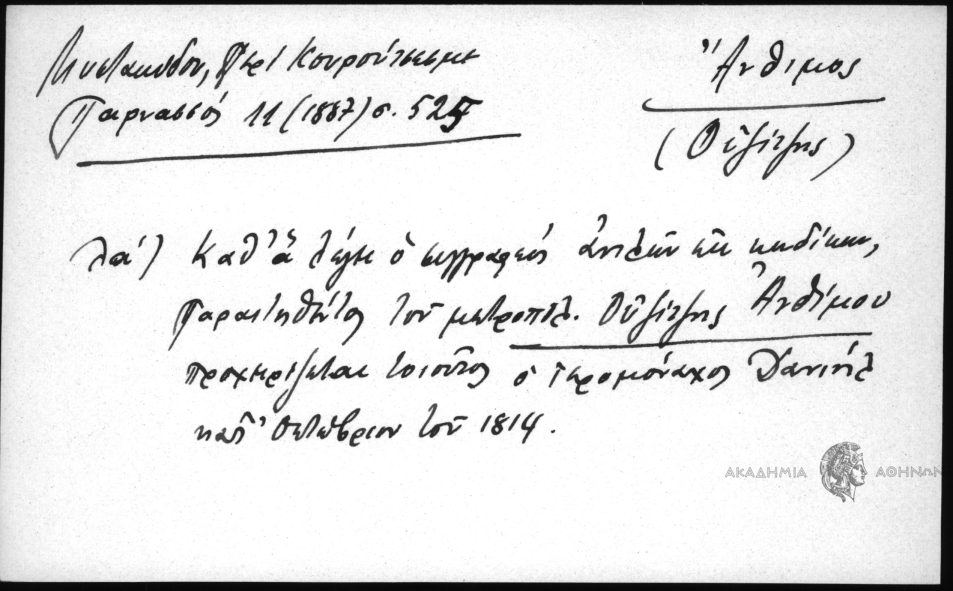 Μυστακίδου, Περί Κουρούτσεσμε
Παρνασσός 11 (1887) σ. 525
Ἄνθιμος
(Οὐζίτζης)
λα') Καθ' ἃ λέγει ὁ συγγραφεύς ἀντλῶν ἐκ κωδίκων,
παραιτηθέντος τοῦ μητροπολ. Οὐζίτζης Ἀνθίμου
προχειρίζεται τοιοῦτος ὁ ἱερομόναχος Δανιήλ
κατ' Ὀκτώβριον τοῦ 1814.
ΑΚΑΔΗΜΙΑ ΑΘΗΝΩΝ